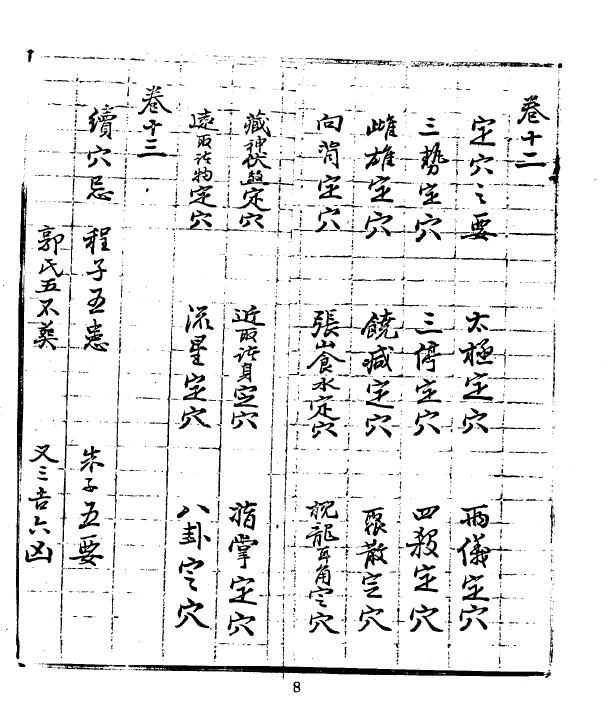 卷十二
定穴之要 太極定穴 兩儀定穴
三勢定穴 三停定穴 四殺定穴
雌雄定穴 饒減定穴 聚散定穴
向背定穴 張山食水定穴 枕龍耳角定穴
藏神伏煞定穴 近取诸身定穴 指掌定穴
遠取诸物定穴 流星定穴 八卦定穴
卷十三
續穴忌 程子五患 朱子五要
郭氏五不葬 又三吉六凶
8